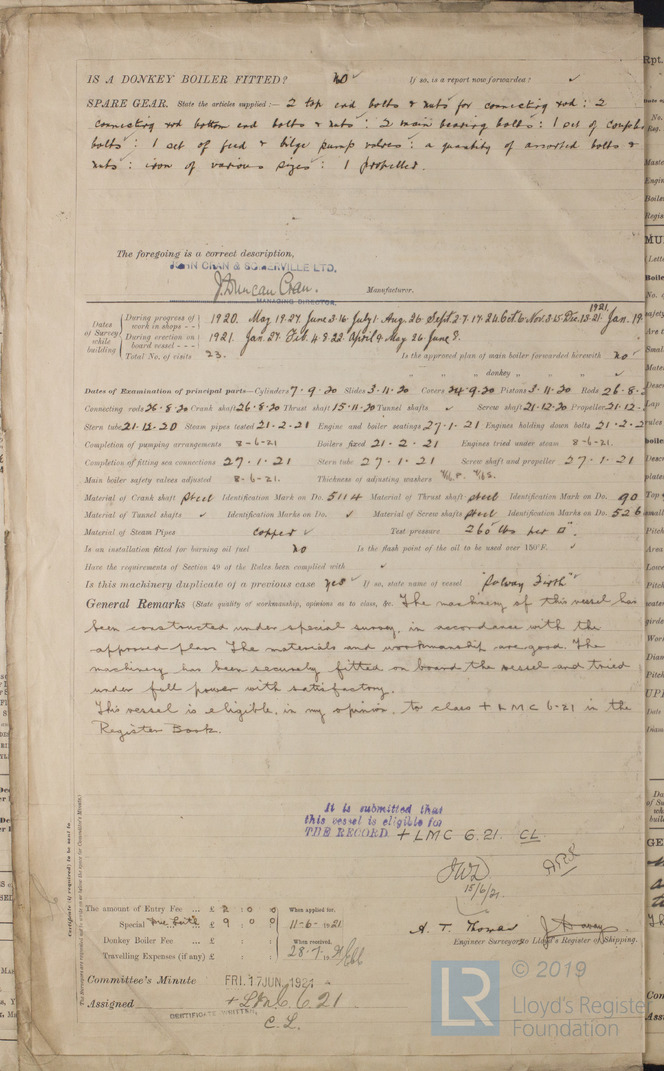 IS A DONKEY BOILER FITTED? no ✓ If so, is a report now forwarded? ✓
SPARE GEAR. State the articles supplied:— 2 top end bolts & nuts for connecting rod : 2
connecting rod bottom end bolts & nuts : 2 main bearing bolts : 1 set of coupling
bolts : 1 set of feed & bilge pump valves : a quantity of assorted bolts &
nuts : iron of various sizes : 1 propeller.
The foregoing is a correct description,
JOHN CRAN & SOMERVILLE LTD.
J. Duncan Cran. Manufacturer.
MANAGING DIRECTOR.
Dates of Survey while building
During progress of work in shops - - 1920. May 19.27. June 3.16. July 1. Aug. 26. Sept. 2.7.17.24. Oct. 6. Nov. 3.15. Dec. 13.21. 1921 Jan. 19.
During erection on board vessel - - - 1921. Jan. 27. Feb. 4.8.22. April 9. May. 26. June 8.
Total No. of visits 23. Is the approved plan of main boiler forwarded herewith no ✓
" " " donkey " " ✓
Dates of Examination of principal parts—Cylinders 7.9.20 Slides 3.11.20 Covers 24.9.20 Pistons 3.11.20 Rods 26.8.
Connecting rods 26.8.20 Crank shaft 26.8.20 Thrust shaft 15.11.20 Tunnel shafts ✓ Screw shaft 21.12.20 Propeller 21.12.
Stern tube 21.12.20 Steam pipes tested 21.2.21 Engine and boiler seatings 27.1.21 Engines holding down bolts 21.2.2
Completion of pumping arrangements 8-6-21 Boilers fixed 21.2.21 Engines tried under steam 8-6-21.
Completion of fitting sea connections 27.1.21 Stern tube 27.1.21 Screw shaft and propeller 27.1.21
Main boiler safety valves adjusted 8-6-21. Thickness of adjusting washers
Material of Crank shaft Steel Identification Mark on Do. 5114 Material of Thrust shaft Steel Identification Mark on Do. 90
Material of Tunnel shafts ✓ Identification Marks on Do. ✓ Material of Screw shafts Steel Identification Marks on Do. 526
Material of Steam Pipes Copper ✓ Test pressure 260 lbs per □".
Is an installation fitted for burning oil fuel no Is the flash point of the oil to be used over 150°F. ✓
Have the requirements of Section 49 of the Rules been complied with ✓
Is this machinery duplicate of a previous case yes ✓ If so, state name of vessel "Solway Firth" ✓
General Remarks (State quality of workmanship, opinions as to class, &c. The machinery of this vessel has
been constructed under special survey, in accordance with the
approved plans The materials and workmanship are good. The
machinery has been securely fitted on board the vessel and tried
under full power with satisfactory.
This vessel is eligible, in my opinion, to class + LMC 6-21 in the
Register Book.
It is submitted that
this vessel is eligible for
THE RECORD. + LMC 6.21. CL
JWD
15/6/21
The amount of Entry Fee ... £ 2 : 0 : 0 When applied for,
Special ... £ 9 : 0 : 0 11-6-1921
Donkey Boiler Fee ... £ : : When received,
Travelling Expenses (if any) £ : : 28.7.19
A. T. Thomas
Engineer Surveyor to Lloyd's Register of Shipping.
Committee's Minute FRI. 17 JUN. 1921
Assigned + LMC 6.21
CERTIFICATE WRITTEN.
C.L.
© 2019
LR Lloyd's Register
Foundation